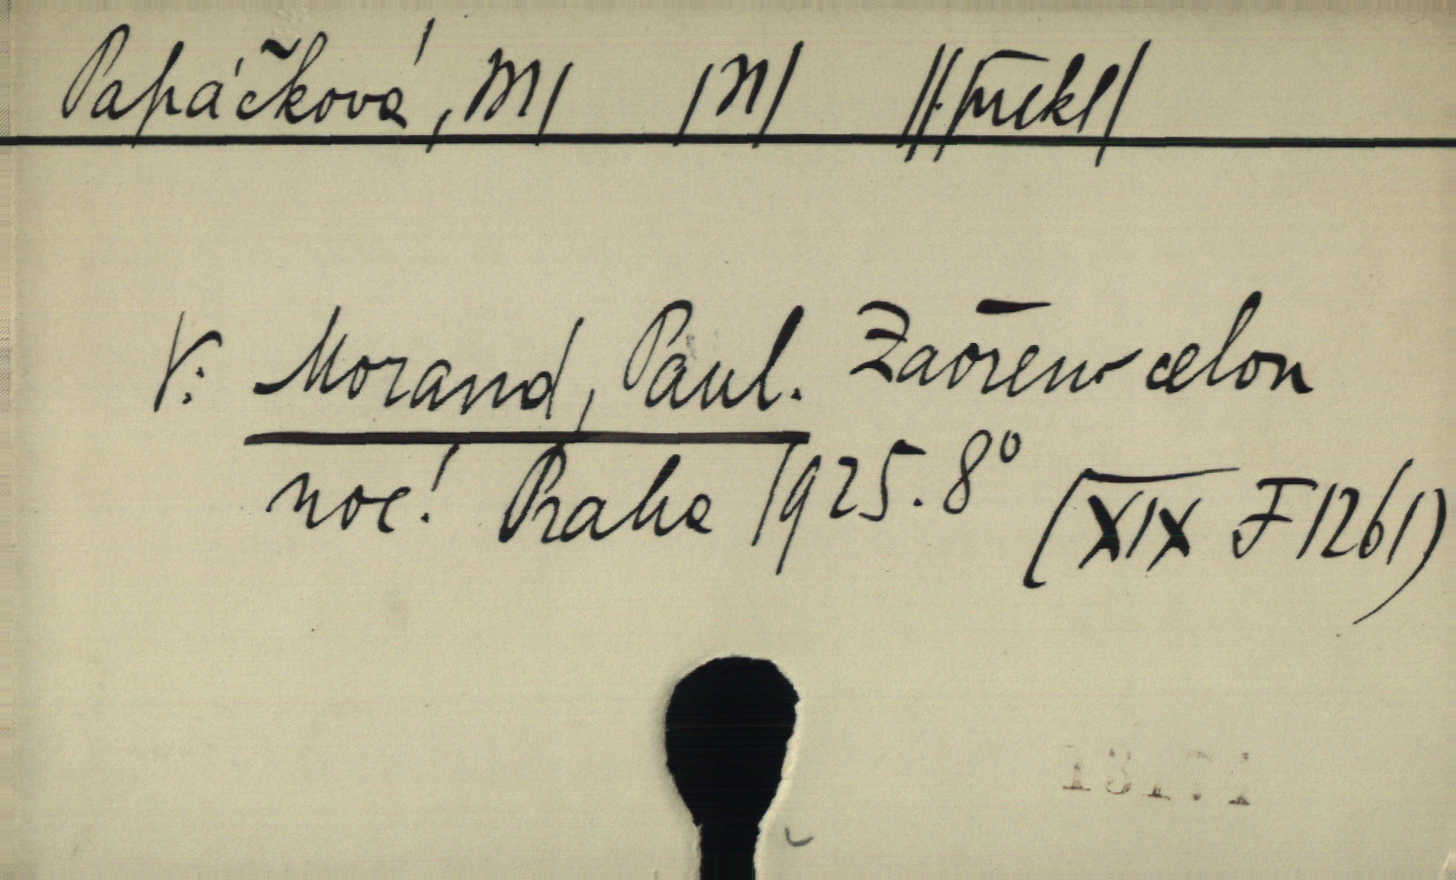 Papáčková, M/ /M/ //překl/
V: Morand, Paul. Zavřeno celou
noc! Praha 1925. 8° (XIX F 1261)